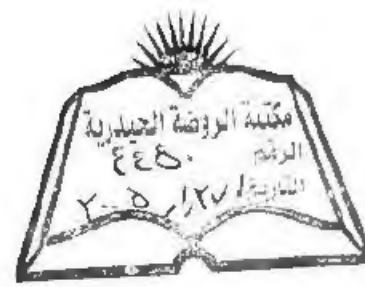 مكتبة الروضة الحيدرية
الرقم ٤٤٥٠
التاريخ